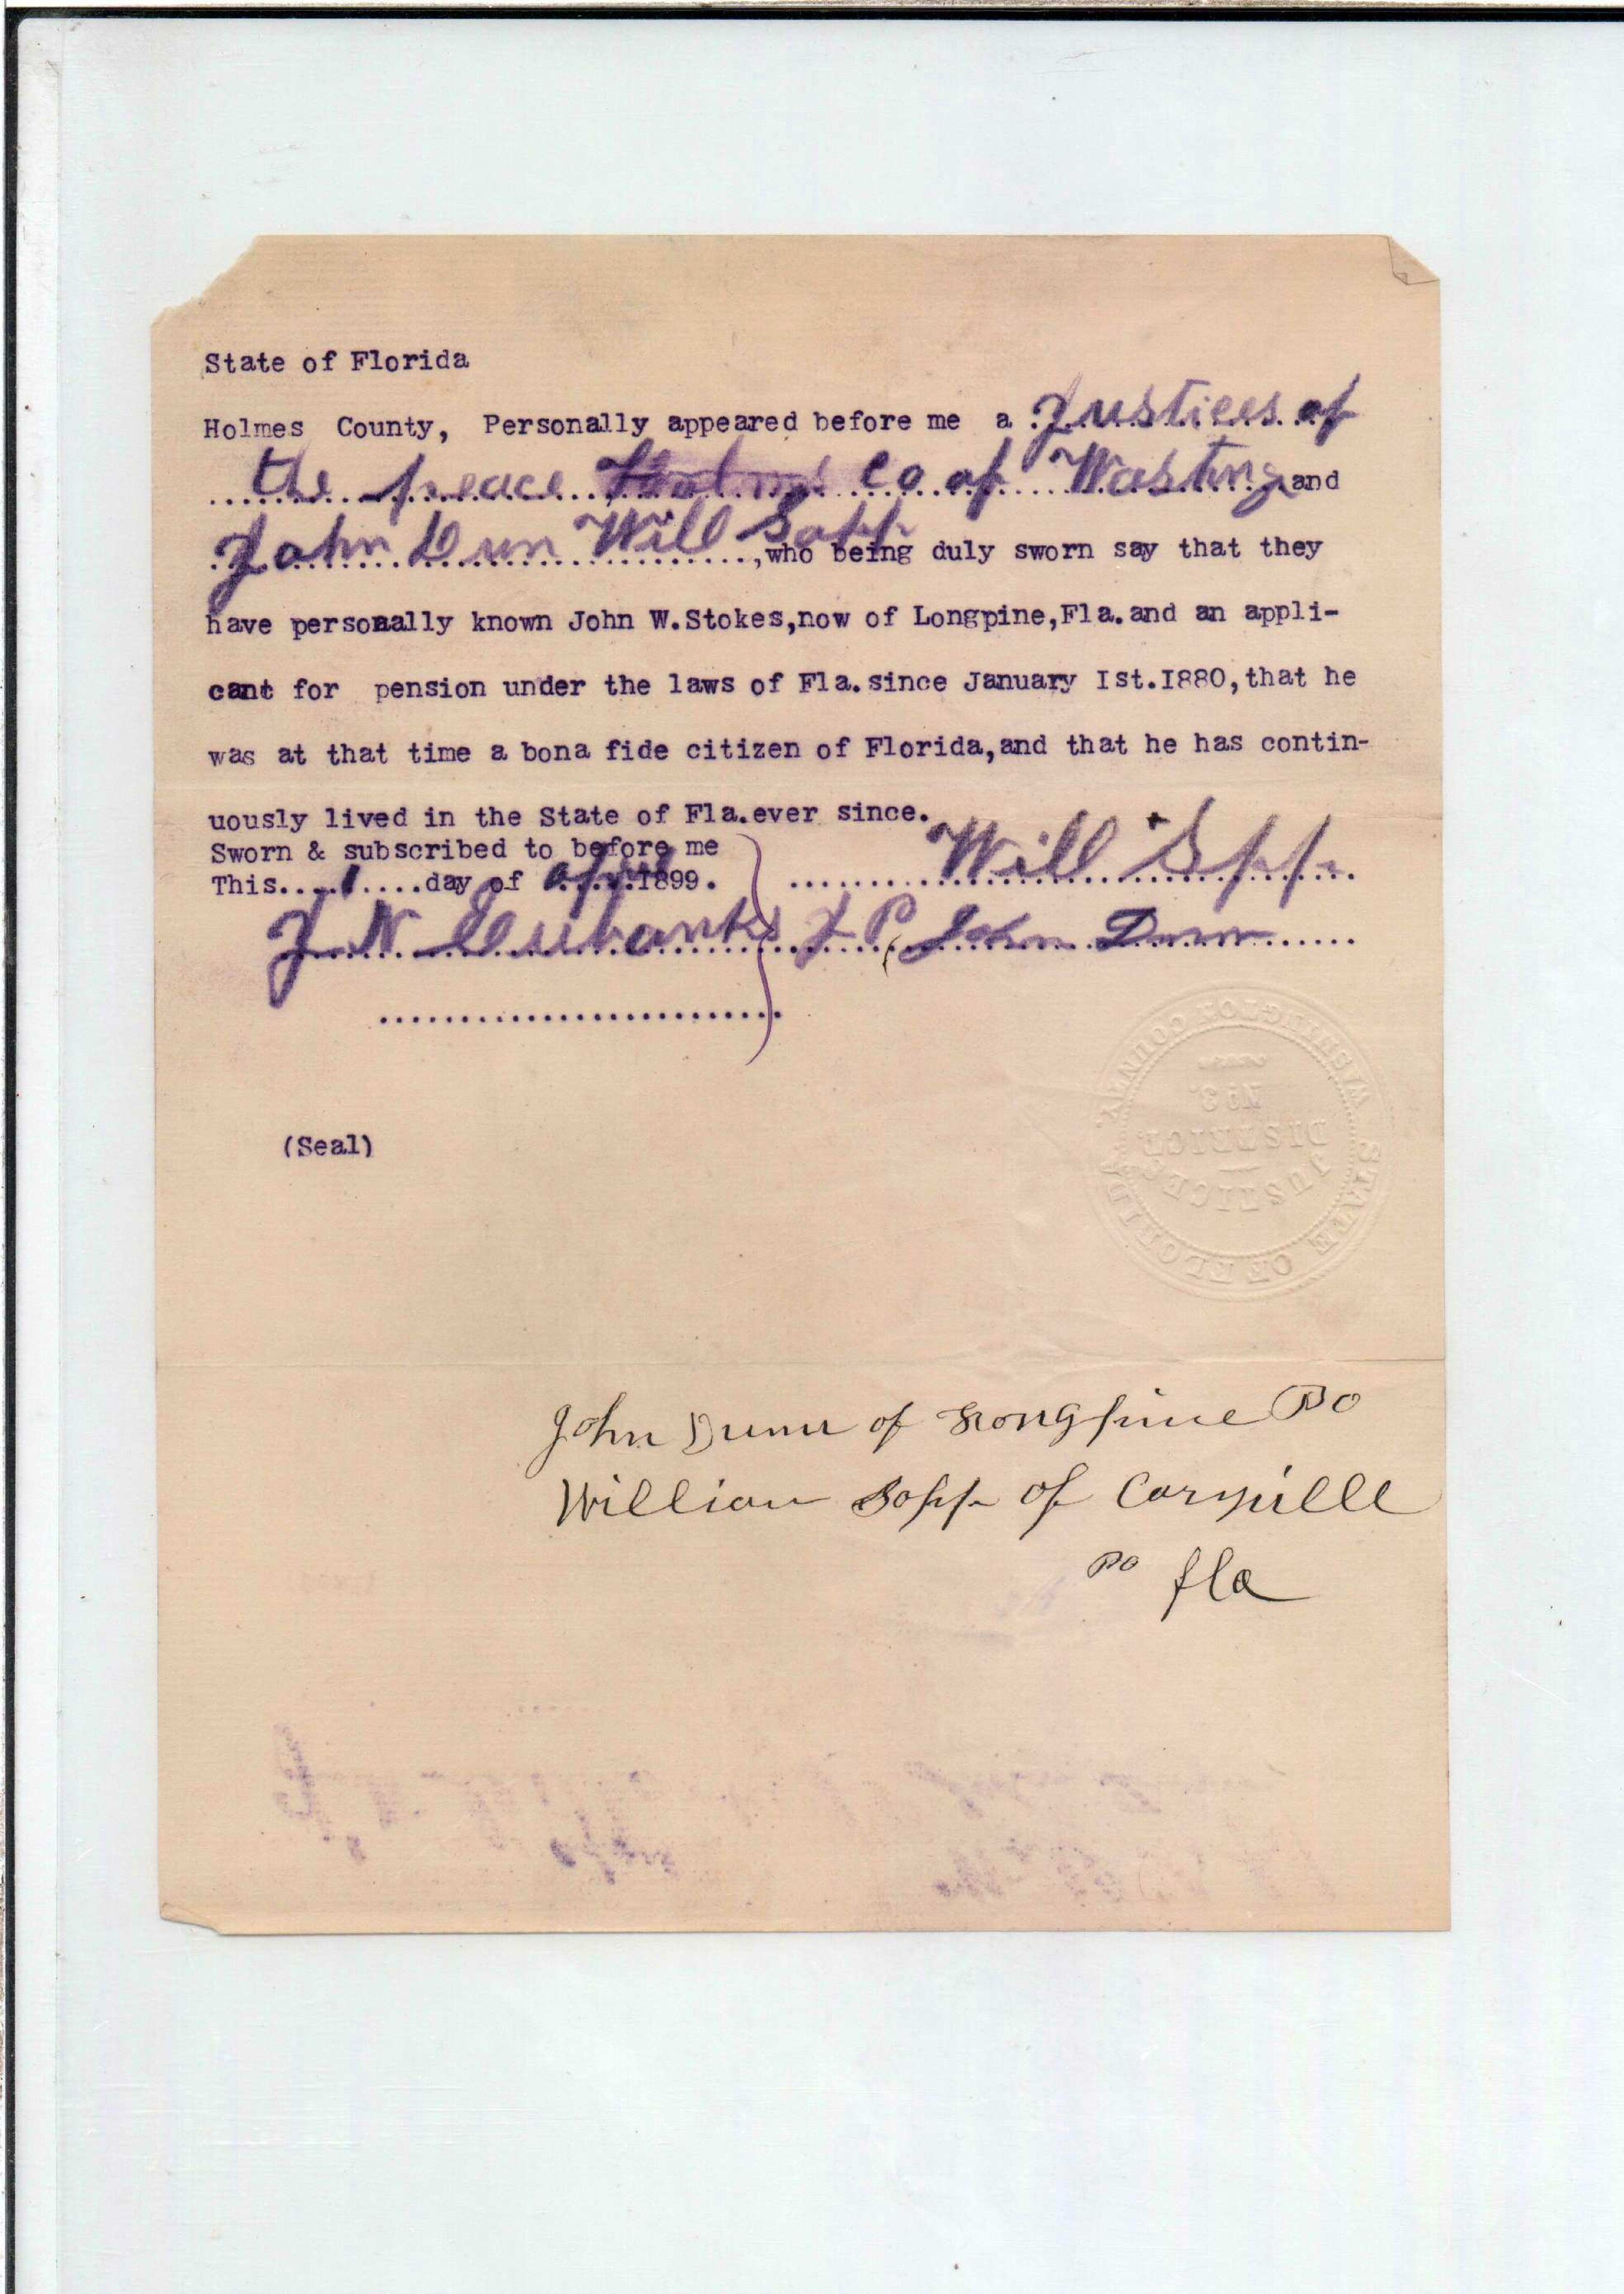 State of Florida
Holmes County, Personally appeared before me a Justices of
the peace Co of Wasting and
John Dun Will Sapp, who being duly sworn say that they
have personally known John W.Stokes,now of Longpine,Fla.and an appli-
cant for pension under the laws of Fla.since January Ist.I880,that he
was at that time a bona fide citizen of Florida,and that he has contin-
uously lived in the State of Fla.ever since.
Sworn & subscribed to before me
This....1....day of april 1899.
Will Sapp
J N Eubanks J P John Dunn
(Seal)
WASHINGTON COUNTY.
No 3.
DISTRICT
JUSTICES
STATE OF FLORIDA
John Dunn of Longpine PO
William Sapp of Caryville
PO fla